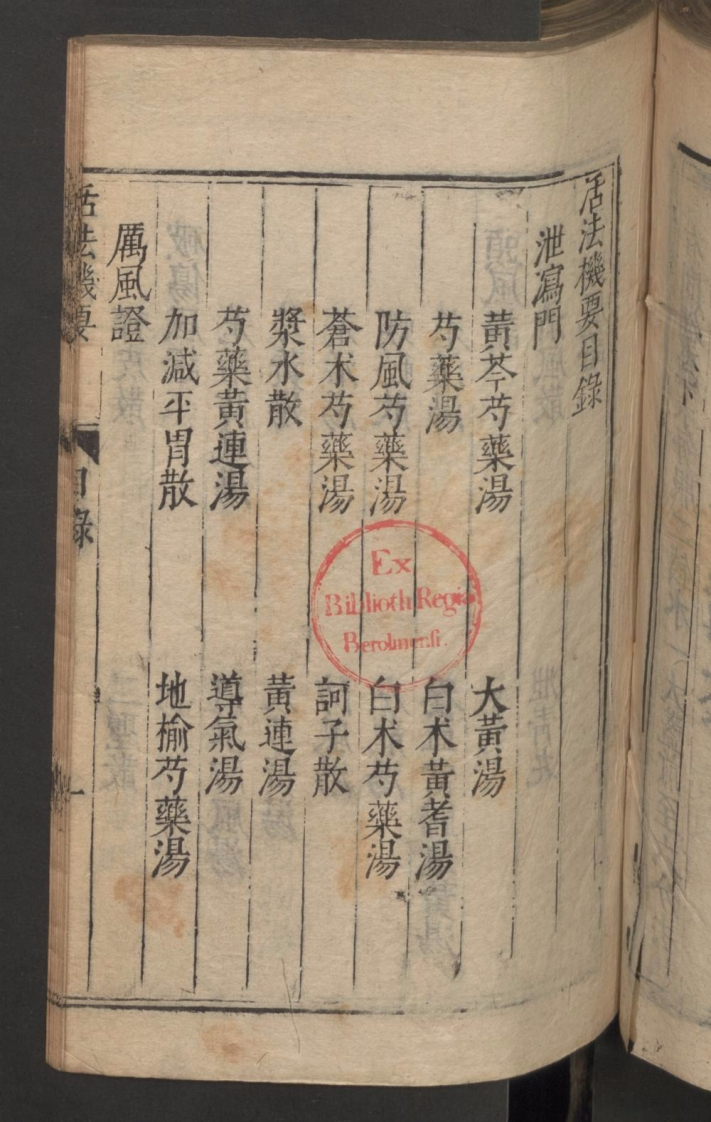 活法機要目錄
泄瀉門
黃芩芍藥湯　大黃湯
芍藥湯　白朮黃耆湯
防風芍藥湯　白朮芍藥湯
蒼朮芍藥湯　訶子散
漿水散　黃連湯
芍藥黃連湯　導氣湯
加減平胃散　地榆芍藥湯
厲風證
活法機要　目錄　一
Ex
Biblioth. Regia
Berolinensi.